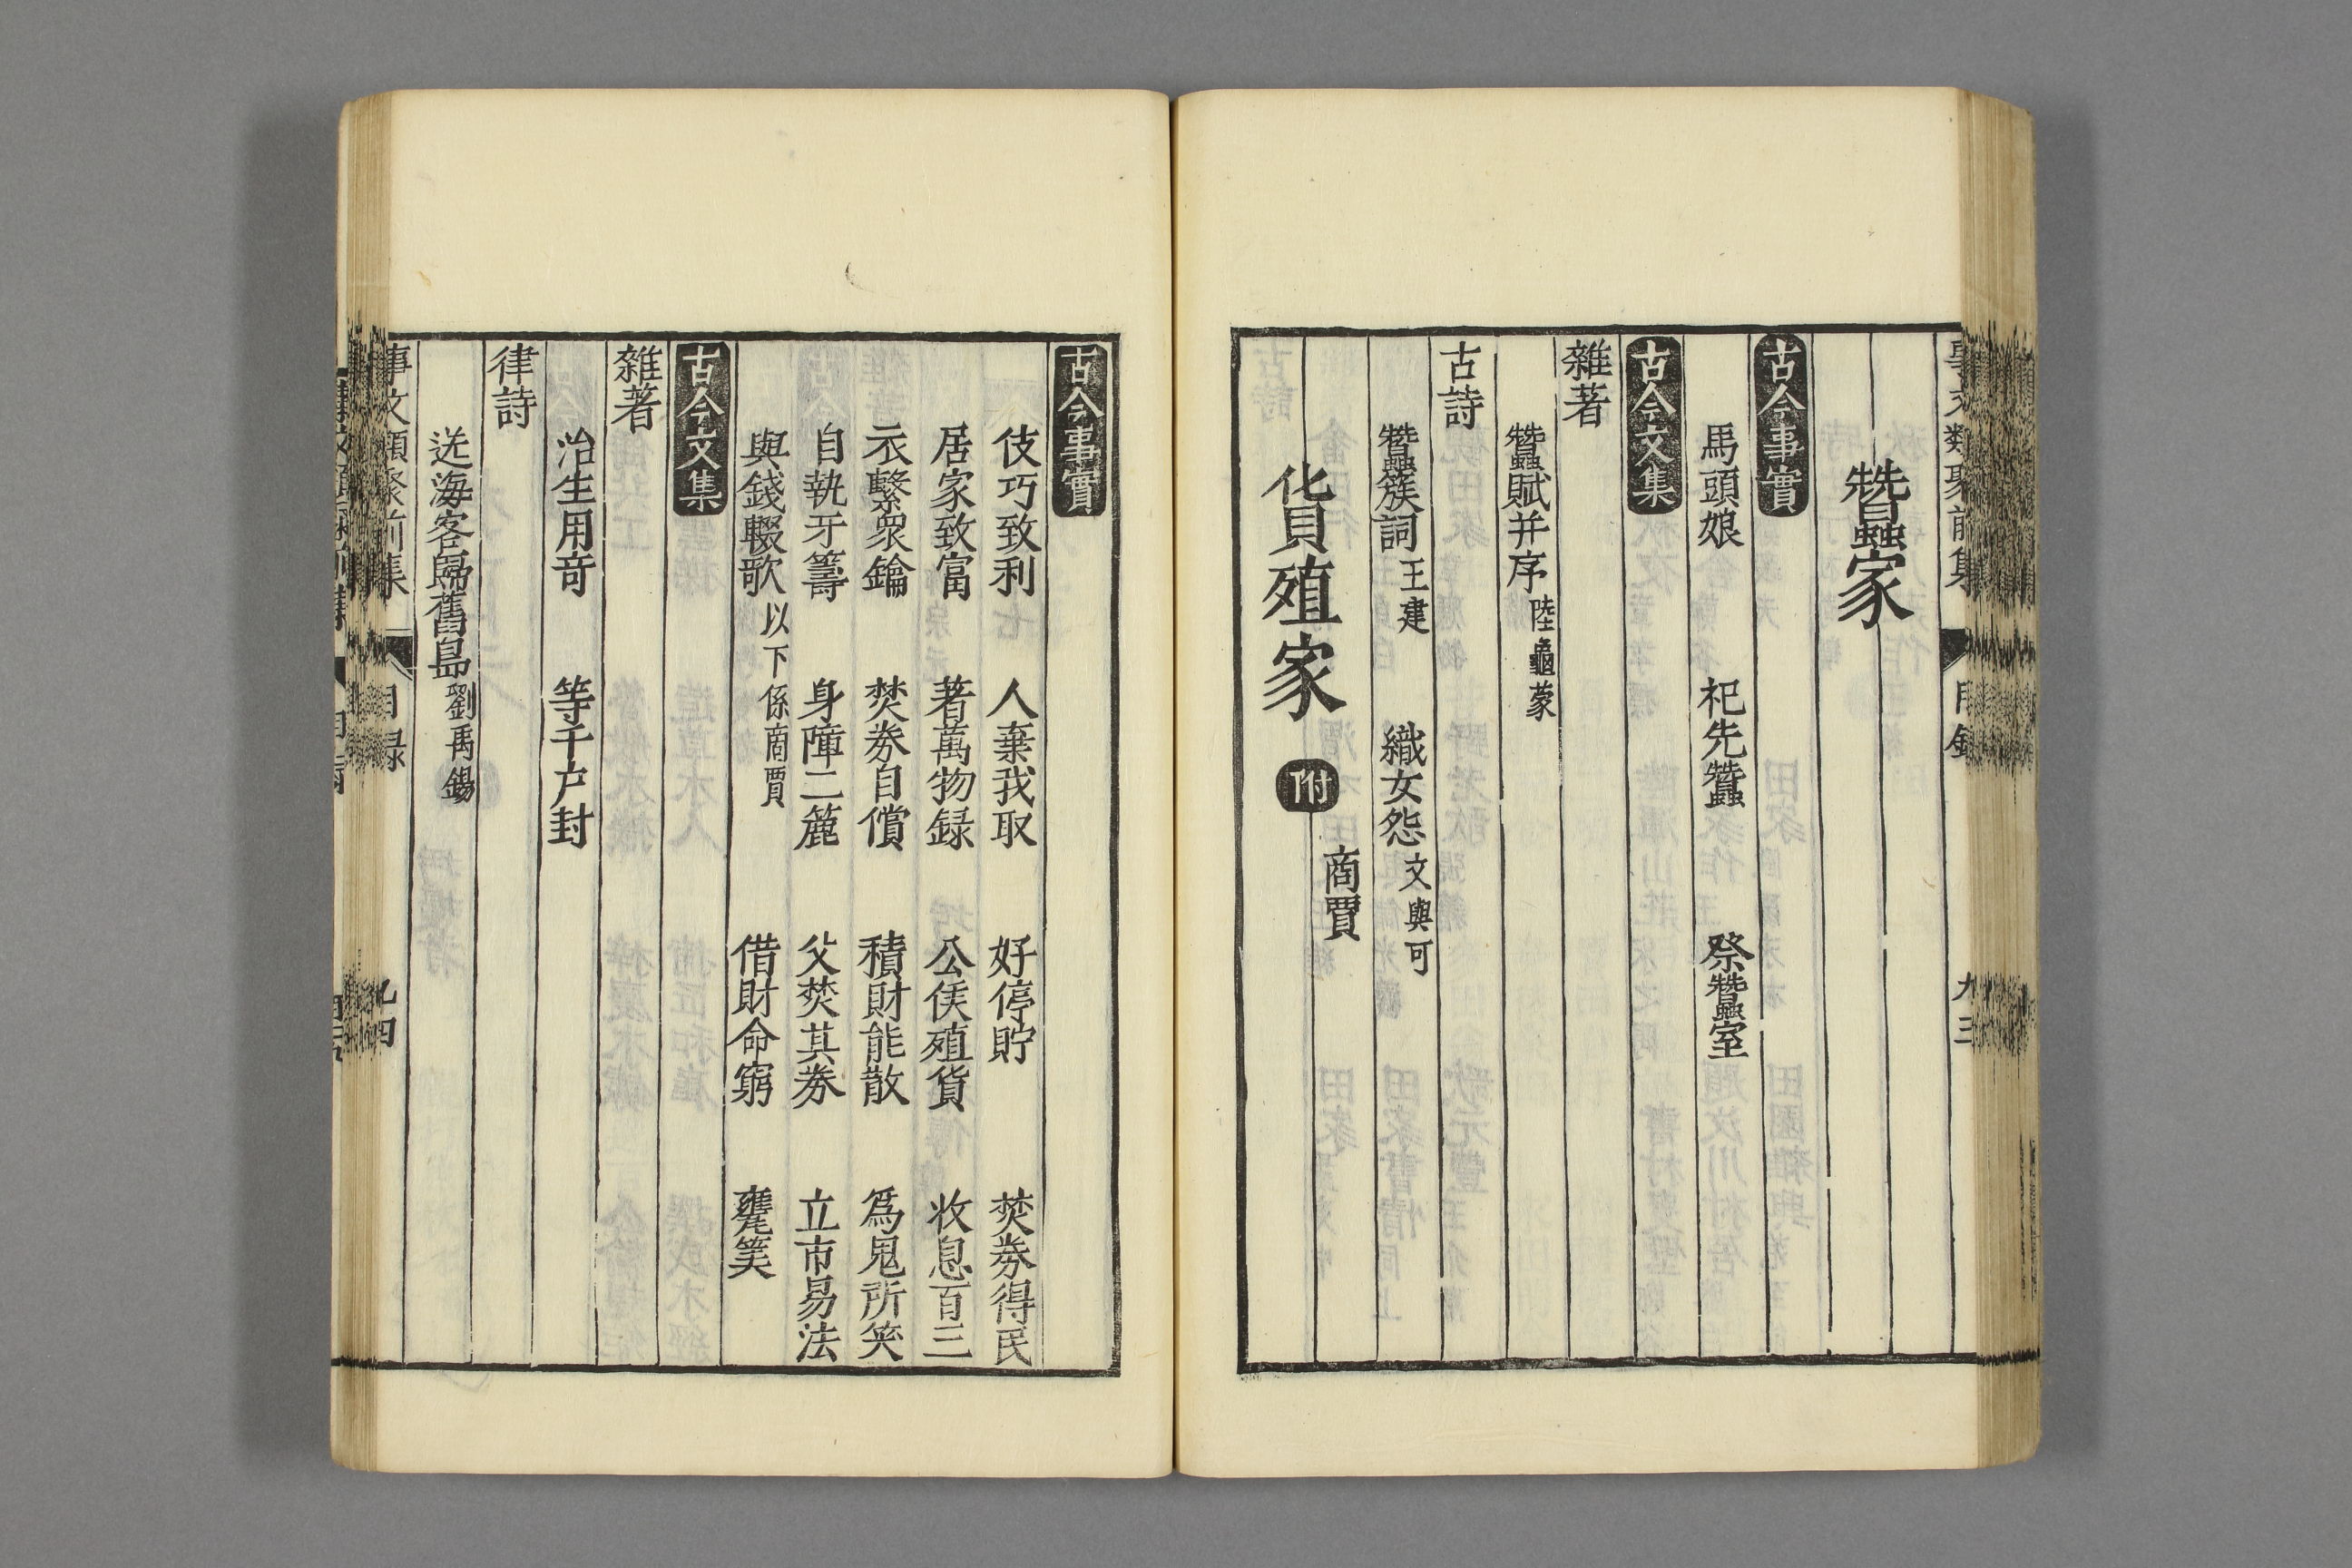 事文類聚前集 目錄 九三
蠶家
古今事實
馬頭娘 祀先蠶 祭蠶室
古今文集
雜著
蠶賦并序 陸龜蒙
古詩
蠶簇詞 王建 織女怨 文與可
貨殖家 附 商賈
古今事實
伎巧致利 人棄我取 好停貯 焚券得民
居家致富 著萬物録 公侯殖貨 收息百三
衣繫衆鑰 焚券自償 積財能散 爲鬼所笑
自執牙籌 身障二簏 父焚其券 立市易法
與錢輟歌 以下係商賈 借財命窮 甕筭
古今文集
雜著
治生用奇 等千户封
律詩
送海客歸舊島 劉禹錫
事文類聚前集 目録 九四